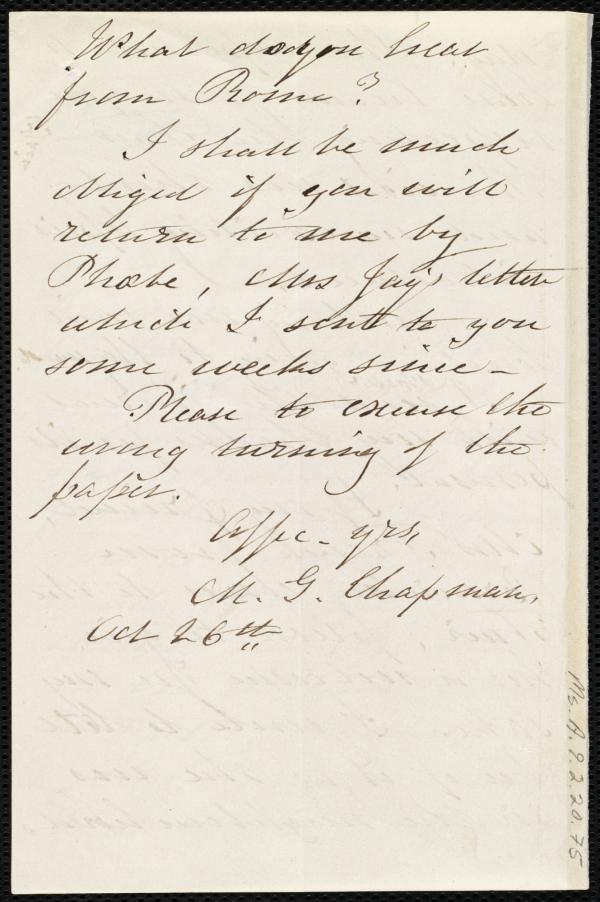 What do you hear
from Rome?
I shall be much
obliged if you will
return to me by
Phœbe, Mrs Jay's letter
which I sent to you
some weeks since -
Please to excuse the
wrong turning of the
paper.
Affec - yrs,
M. G. Chapman,
Oct 26th
Ms. A. 9.2.20.75